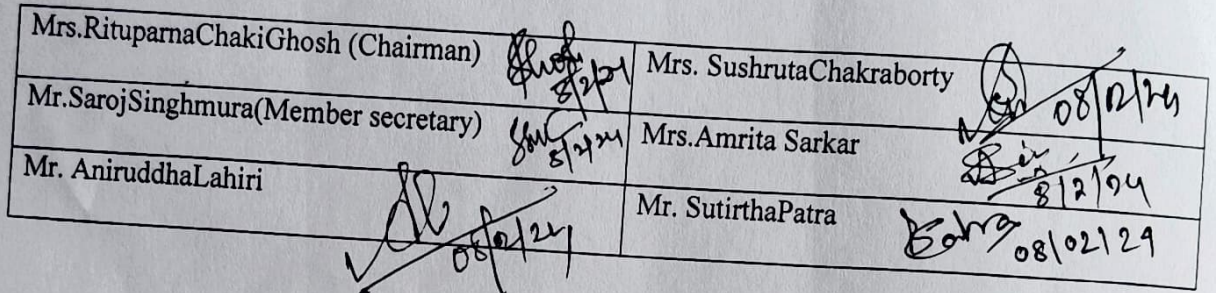 Mrs.RituparnaChakiGhosh (Chairman) 8/2/24 Mrs. SushrutaChakraborty 08/02/24
Mr.SarojSinghmura(Member secretary) 8/2/24 Mrs.Amrita Sarkar 8/2/24
Mr. AniruddhaLahiri 08/02/24 Mr. SutirthaPatra 08/02/24